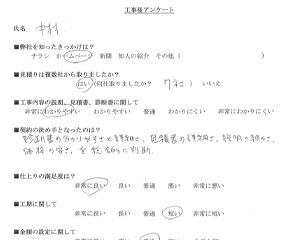 工事後アンケート
氏名 中村
■弊社を知ったきっかけは？
チラシ ホームページ 新聞 知人の紹介 その他（ ）
■見積りは複数社から取りましたか？
はい（何社取りましたか？ ） いいえ
■工事内容の説明、見積書、診断書に関して
非常にわかりやすい わかりやすい 普通 わかりにくい 非常にわかりにくい
■契約の決め手となったのは？
診断書の分かりやすさと詳細さ、見積書の詳細さ、説明の
価格の安さ、を総合的に判断
■仕上りの満足度は？
非常に良い 良い 普通 悪い 非常に悪い
■工期に関して
非常に長い 長い 普通 短い 非常に短い
■金額の設定に関して